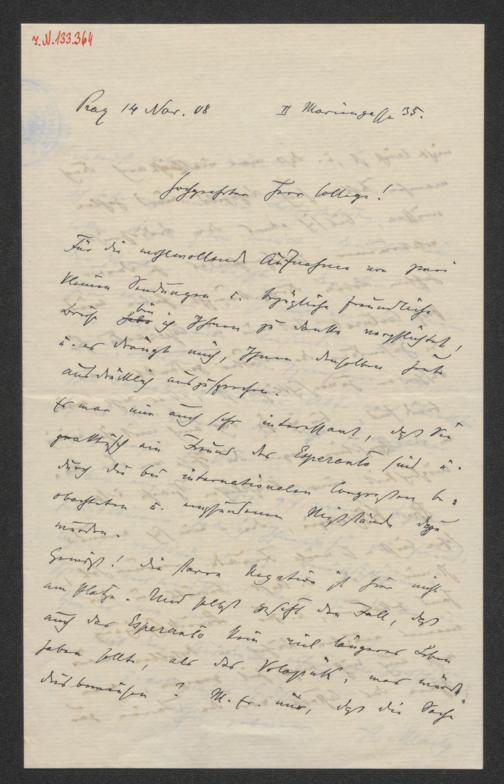 I.N. 133.364
Prag 14 Nov. 08 II Mariengasse 35.
Hochgeehrter Herr College!
Für die wohlwollende Aufnahme von zwei
kleinen Sendungen u. bezügliche freundliche
Briefe bin ich Ihnen zu Danke verpflichtet,
u. es drängt mich, Ihnen denselben heute
ausdrücklich auszusprechen.
Es war mir auch sehr interessant, daß Sie
praktisch ein Freund des Esperanto sind u.
durch die bei internationalen Congressen be-
obachteten u. empfundenen Mißstände dazu
wurden.
Gewiß! die starre Negation ist hier nicht
am Platze. Und selbst gesetzt den Fall, daß
auch das Esperanto kein viel längeres Leben
haben sollte, als das Volapük, was würde
dies beweisen? M. E. nur, daß die Sache